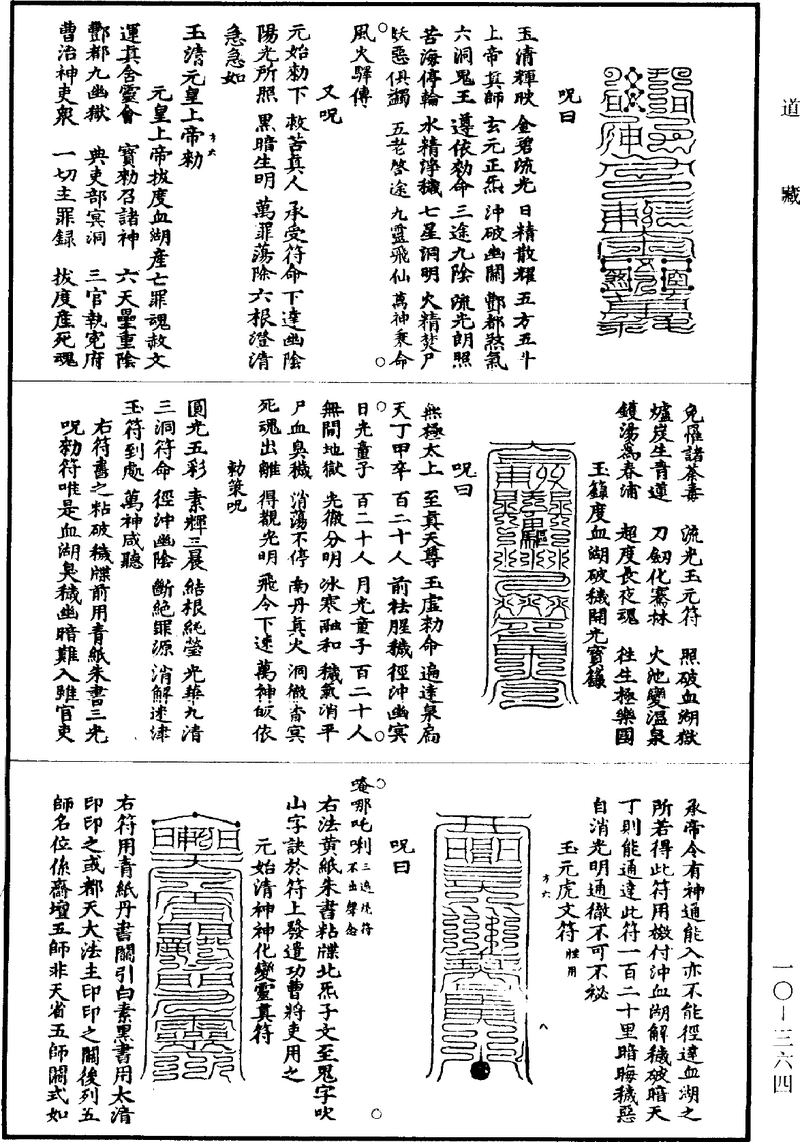 道藏
呪曰
玉清輝映 金碧流光 日精散耀 五方五斗
上帝真師 玄元正炁 沖破幽關 酆都煞氣
六洞鬼王 遵依勑命 三途九陰 流光朗照
苦海停輪 水精淨穢 七星洞明 火精焚尸
妖惡俱蠲 五老啓途 九靈飛仙 萬神秉命
風火驛傳
又呪
元始勑下 救苦真人 承受符命 下達幽陰
陽光所照 黑暗生明 萬罪蕩除 六根澄清
急急如
玉清元皇上帝勑
元皇上帝拔度血湖產亡罪魂赦文
運真含靈會 寶勑召諸神 六天疊重陰
酆都九幽獄 典吏部冥洞 三官執寃府
曹治神吏衆 一切主罪録 拔度產死魂
免罹諸荼毒 流光玉元符 照破血湖獄
爐炭生青蓮 刀劒化騫林 火池變温泉
鑊湯為春浦 超度長夜魂 往生極樂國
玉籙度血湖破穢開光寶籙
呪曰
無極太上 至真天尊 玉虛勑命 遍達泉扃
天丁甲卒 百二十人 前袪腥穢 徑沖幽冥
日光童子 百二十人 月光童子 百二十人
無間地獄 光徹分明 冰寒融和 穢氣消平
尸血臭穢 消蕩不停 南丹真火 洞徹杳冥
死魂出離 得覩光明 飛令下速 萬神皈依
勑筞呪
圓光五彩 素輝三晨 結根純瑩 光華九清
三洞符命 徑沖幽陰 斷絕罪源 消解迷津
玉符到處 萬神咸聽
右符書之粘破穢牒前用青紙朱書三光
呪勑符唯是血湖臭穢幽暗難入雖官吏
承帝令有神通能入亦不能徑達血湖之
所若得此符用繳付沖血湖解穢破暗天
丁則能通達此符一百二十里暗晦穢惡
自消光明通徹不可不祕
玉元虎文符 牲用
呪曰
唵哪吒唎 三遍流符不出聲念
右法黄紙朱書粘牒北炁子文至鬼字吹
山字訣於符上發遣功曹將吏用之
元始清神神化變靈真符
右符用青紙丹書關引白素黑書用太清
印印之或都天大法主印印之關後列五
師名位係齋壇五師非天省五師關式如
一〇—三六四